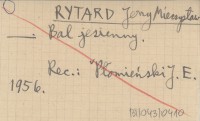 RYTARD Jerzy Mieczysław
—. Bal jesienny.
Rec.: Płomieński J. E.
1956.